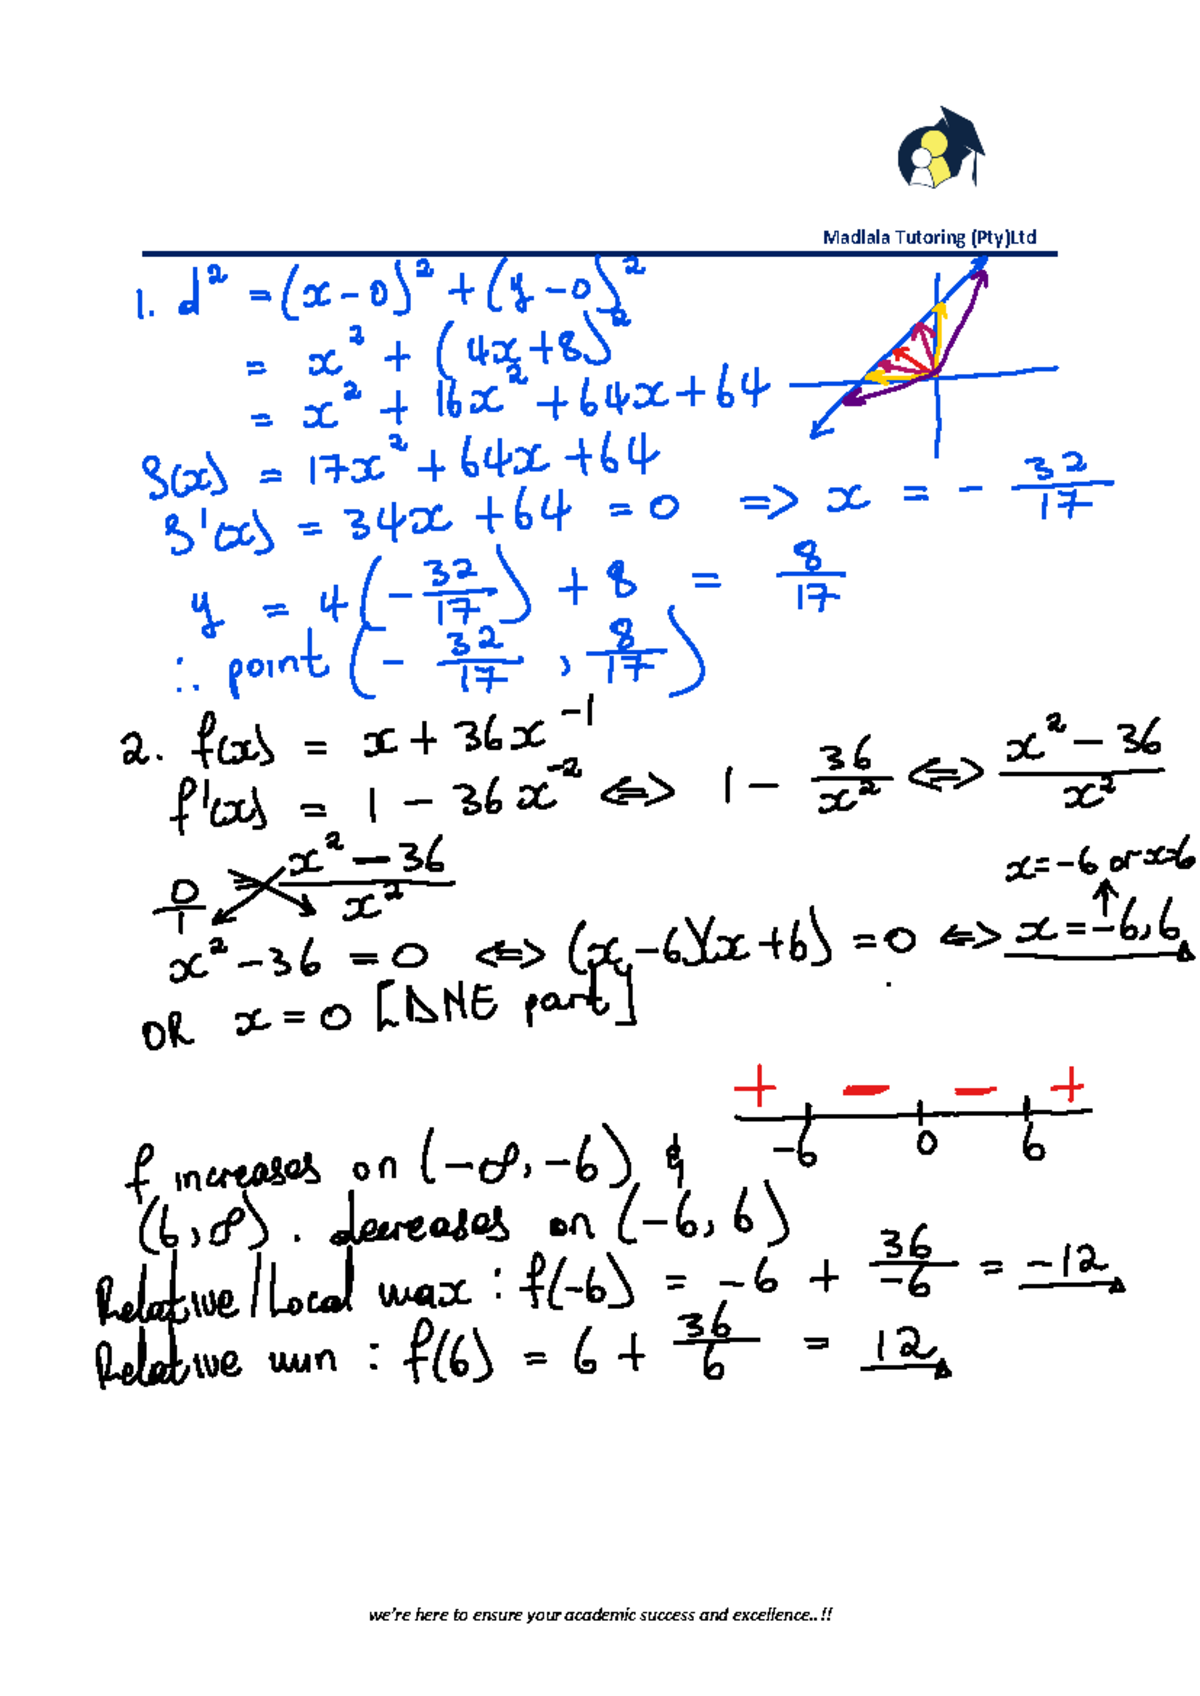 Madlala Tutoring (Pty)Ltd
1. d² = (x – 0)² + (y – 0)²
= x² + (4x + 8)²
= x² + 16x² + 64x + 64
S(x) = 17x² + 64x + 64
S'(x) = 34x + 64 = 0 => x = – 32/17
y = 4(– 32/17) + 8 = 8/17
∴ point (– 32/17 , 8/17)
2. f(x) = x + 36x⁻¹
f'(x) = 1 – 36x⁻² <=> 1 – 36/x² <=> (x² – 36)/x²
0/1 = (x² – 36)/x²
x = –6 or x=6
x² – 36 = 0 <=> (x – 6)(x + 6) = 0 <=> x = –6, 6
OR x = 0 [DNE part]
+ – – +
–6 0 6
f increases on (–∞, –6) &
(6, ∞) . decreases on (–6, 6)
Relative/Local max : f(–6) = –6 + 36/–6 = –12
Relative min : f(6) = 6 + 36/6 = 12
we're here to ensure your academic success and excellence..!!